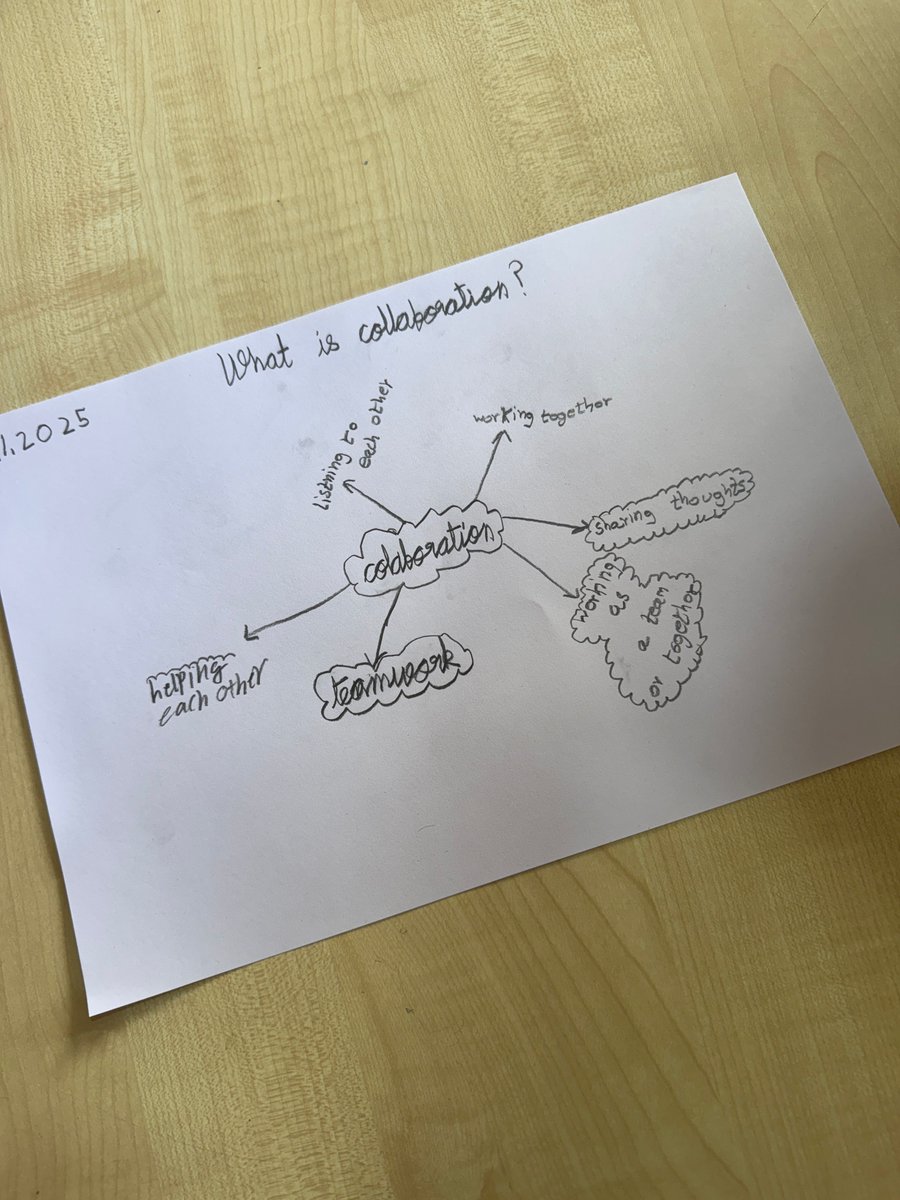 What is collaboration?
1.2025
listning to
each other
working together
colaboration
sharing thoughts
working
as
a team
or together
helping
each other
teamwork